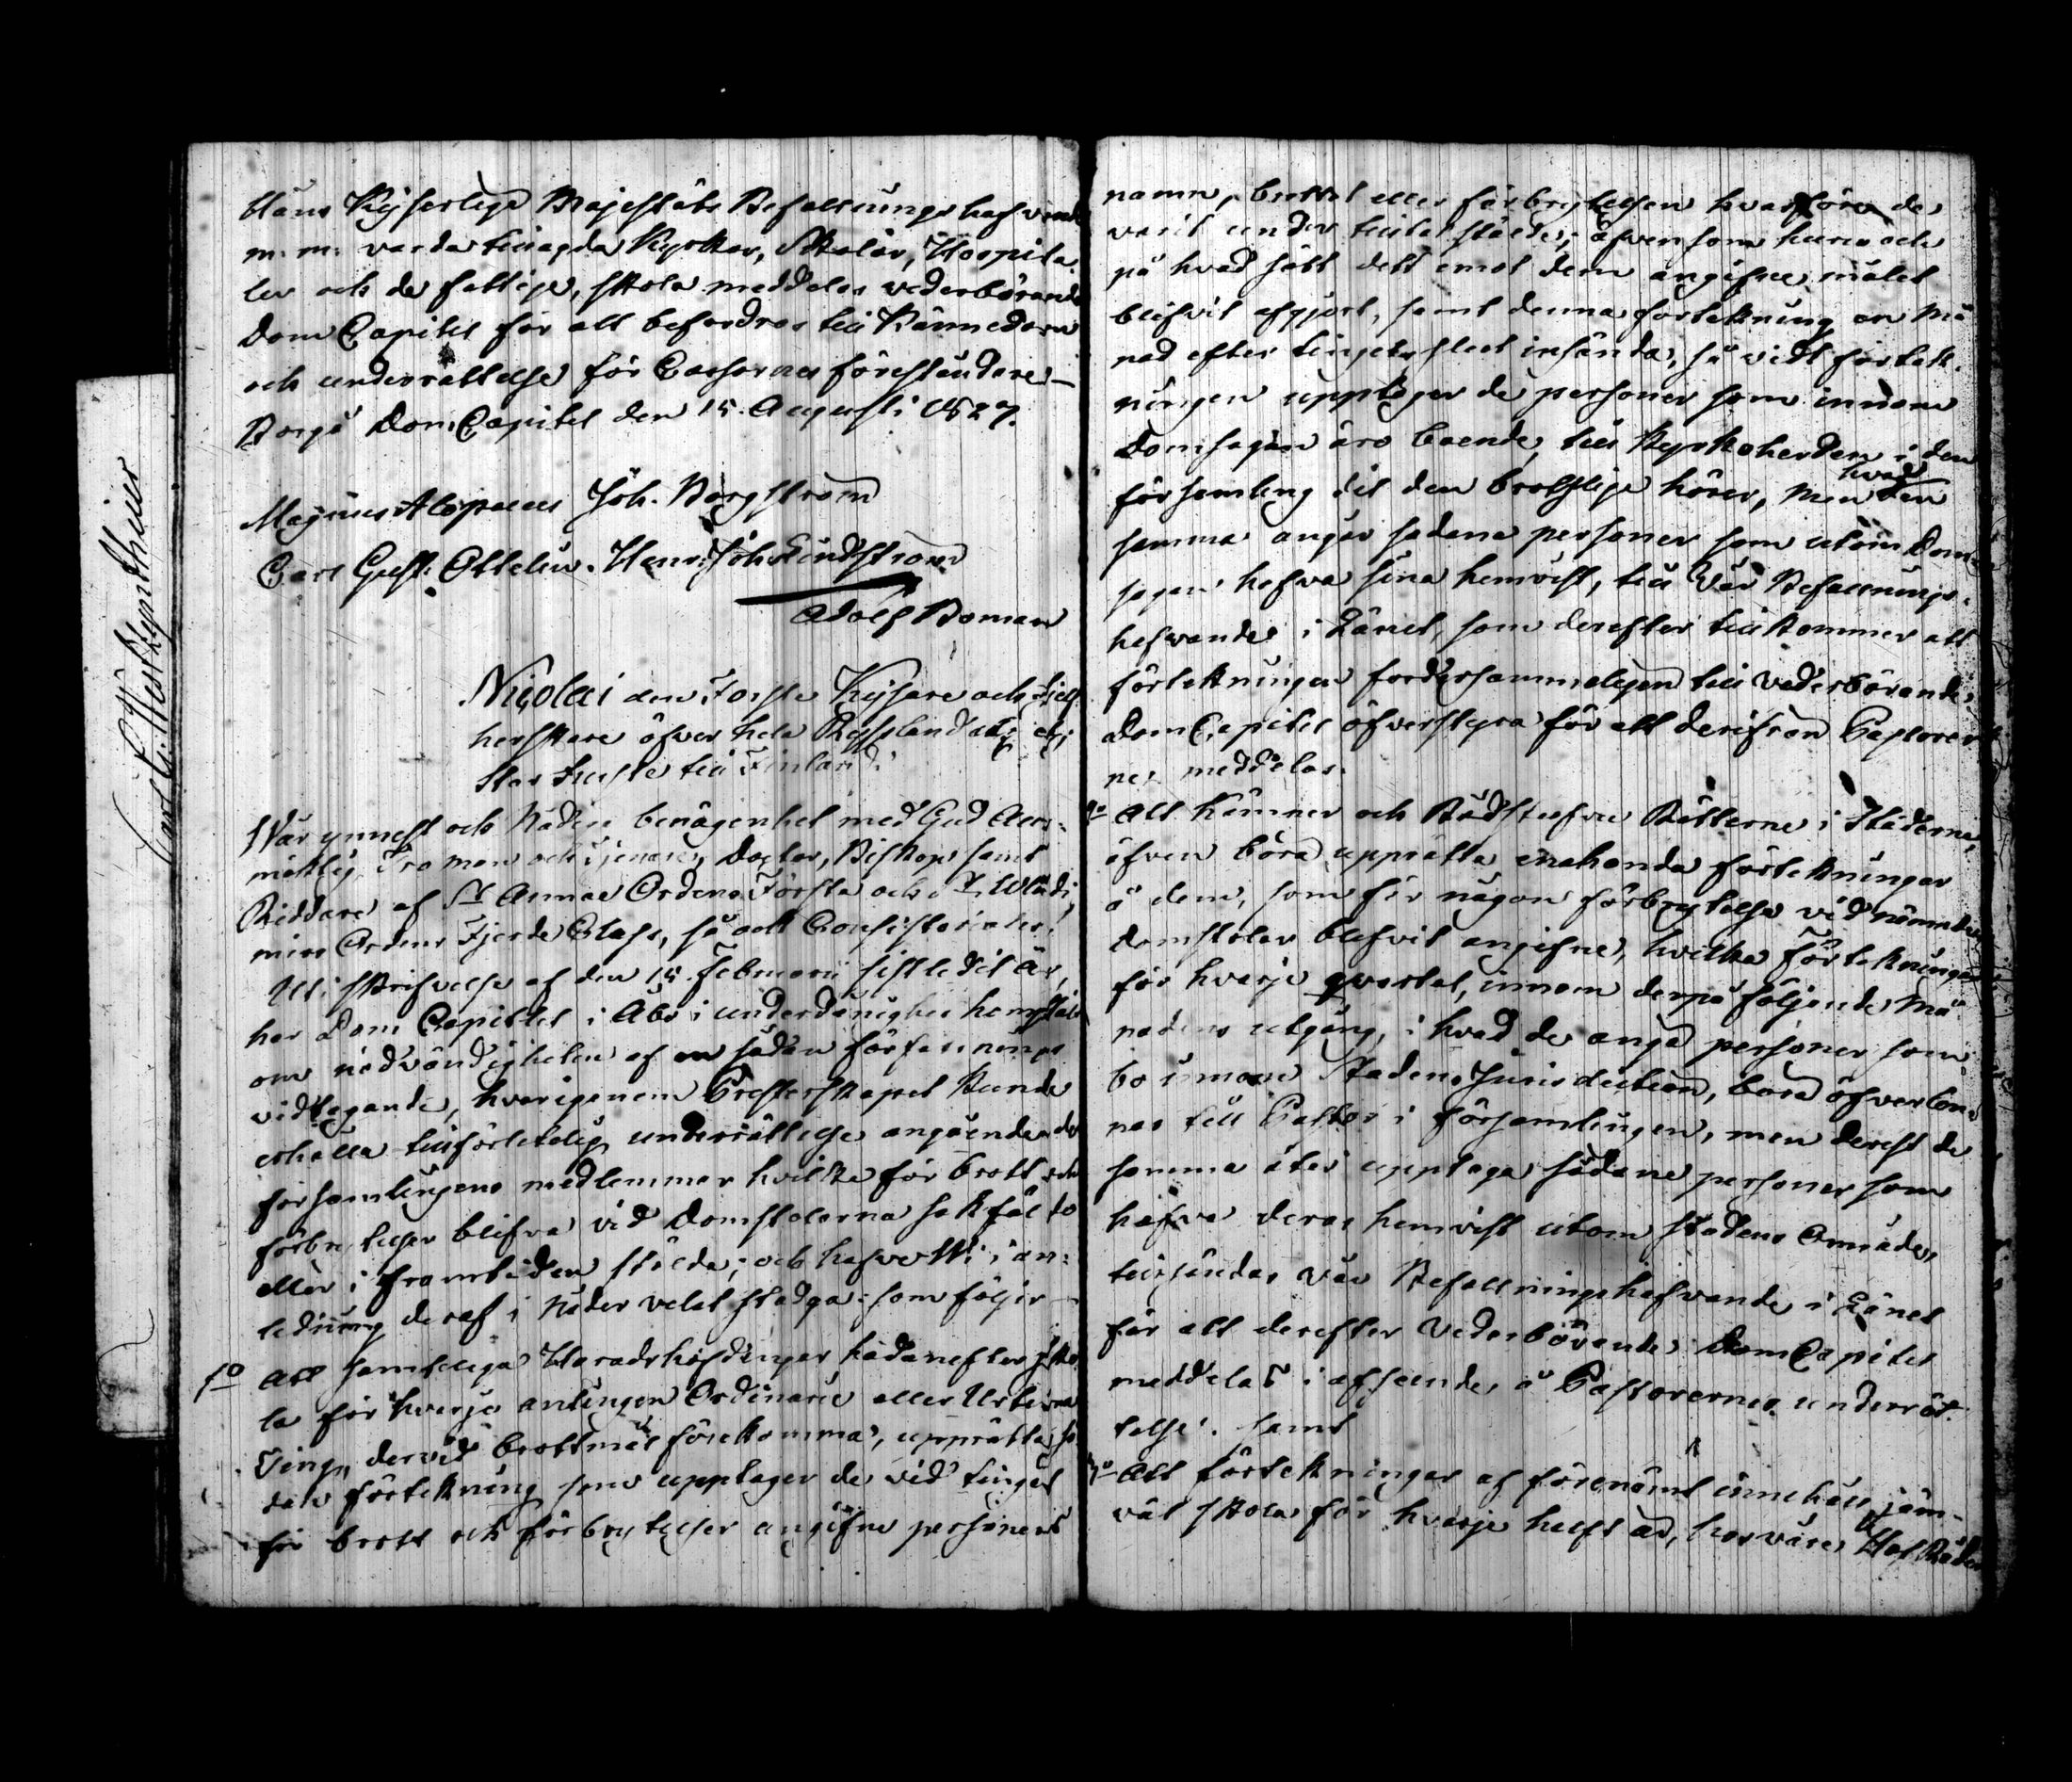 Hans Kejserliga Majestäts Befallningshafvande
m: m: varda tillagda Kyrkor, Skolor, Hospita
ler och de fattige, skola meddelas vederbörande
Dom Capitel för att befordras till Kännedom
och underrättelse för Cassornas föreståndare —
Borgå DomCapitel den 15 Augusti 1827.
Magnus Alopaeus Joh. Borgström
Carl Gust. Ottelin. Henr. Joh. Lindström
Adolf Boman
Nicolai den Förste Kejsare och Sjelf
herskare öfver hela Ryssland etc; etc;
Stor Furste till Finland:
Vår ynnest och Nådiga benägenhet med Gud Alls-
mäktig, Tro man och Tjenare, Doctor, Biskop samt
Riddare af St Annæ Ordens Första och St Wladi,
mirs Ordens Fjerde Class, så ock Consistoriales!
Uti skrifvelse af den 15 Februarii sistledit År,
har Dom Capitlet i Åbo i underdånighet hemstält
om nödvändigheten af en sådan författnings
vidtagande, hvarigenom Presterskapet kunde
erhålla tillförlitelig underrättelse angående de
församlingens medlemmar hvilka för brott och
förbrytelser blifva vid Domstolarna sakfälte
eller i framtiden stälde; och hafve Wi i an-
ledning deraf i Nåder velat stadga: som följer —
1o Att samteliga Häradshöfdingar hädanefter sko
la för hvarje antingen Ordinarie eller Urtima
Ting, dervid brottmål förekomma, upprätta så
dan förtekning som upptager de vid tinget
för brott och förbrytelser angifne personers
namn, brottet eller förbrytelsen hvarföre de
varit under tilltal stälde; äfvensom huru och
på hvad sätt dett emot dem angifne målet
blifvit afgjort, samt denna förtekning en Må
nad efter tingets slut insända, så vidt förtek-
ningen upptager de personer som innom
Domsagan äro boende, till Kyrkoherden i den
församling dit den brottslige hörer, men hvad den
samma angår sådana personer som utom Dom-
sagan hafva sina hemvist, till Vår Befallnings-
hafvande i Länet, som derefter tillkommer att
förtekningen fordersammeligen till Vederbörande
Dom Capitel öfverstyra för att derifrån Pastorer
ne meddelas.
2o Att Kämner och Rådstufvu Rätterne i Städerne,
äfven böra upprätta enahanda förtekningar
å dem, som för någon förbrytelse vid nämnde
domstolar blifvit angifne, hvilka Förtekningar
för hvarje qvartal, innom derpå följande Må
nadens utgång, i hvad de angå personer som
bo innom Stadens Jurisdiction, böra öfverlem-
nas till Pastor i församlingen, men derest de
samma åter upptaga sådane personer som
hafva deras hemvist utom stadens Område,
tillsändas vår Befallningshafvande i Länet
för att derefter Vederbörande DomCapitel
meddelas i afseende å Pastorernes underrät-
telse. samt
3o Att förtekningar af förenämt innehåll jäm-
väl skola för hvarje half år, hos våra Hof Rätter